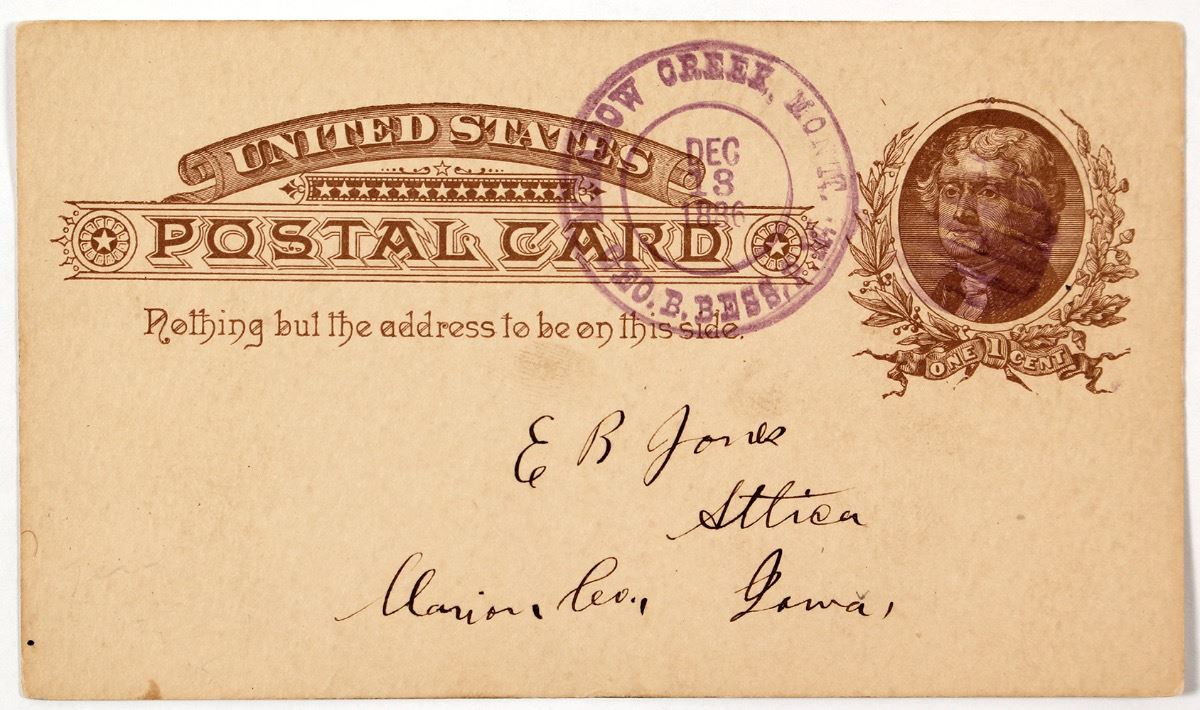 UNITED STATES
POSTAL CARD
Nothing but the address to be on this side.
CREEK, MONT.
DEC
13
1886
GEO. B. BESS,
ONE 1 CENT
E B Jones
Attica
Marion, Co., Iowa,